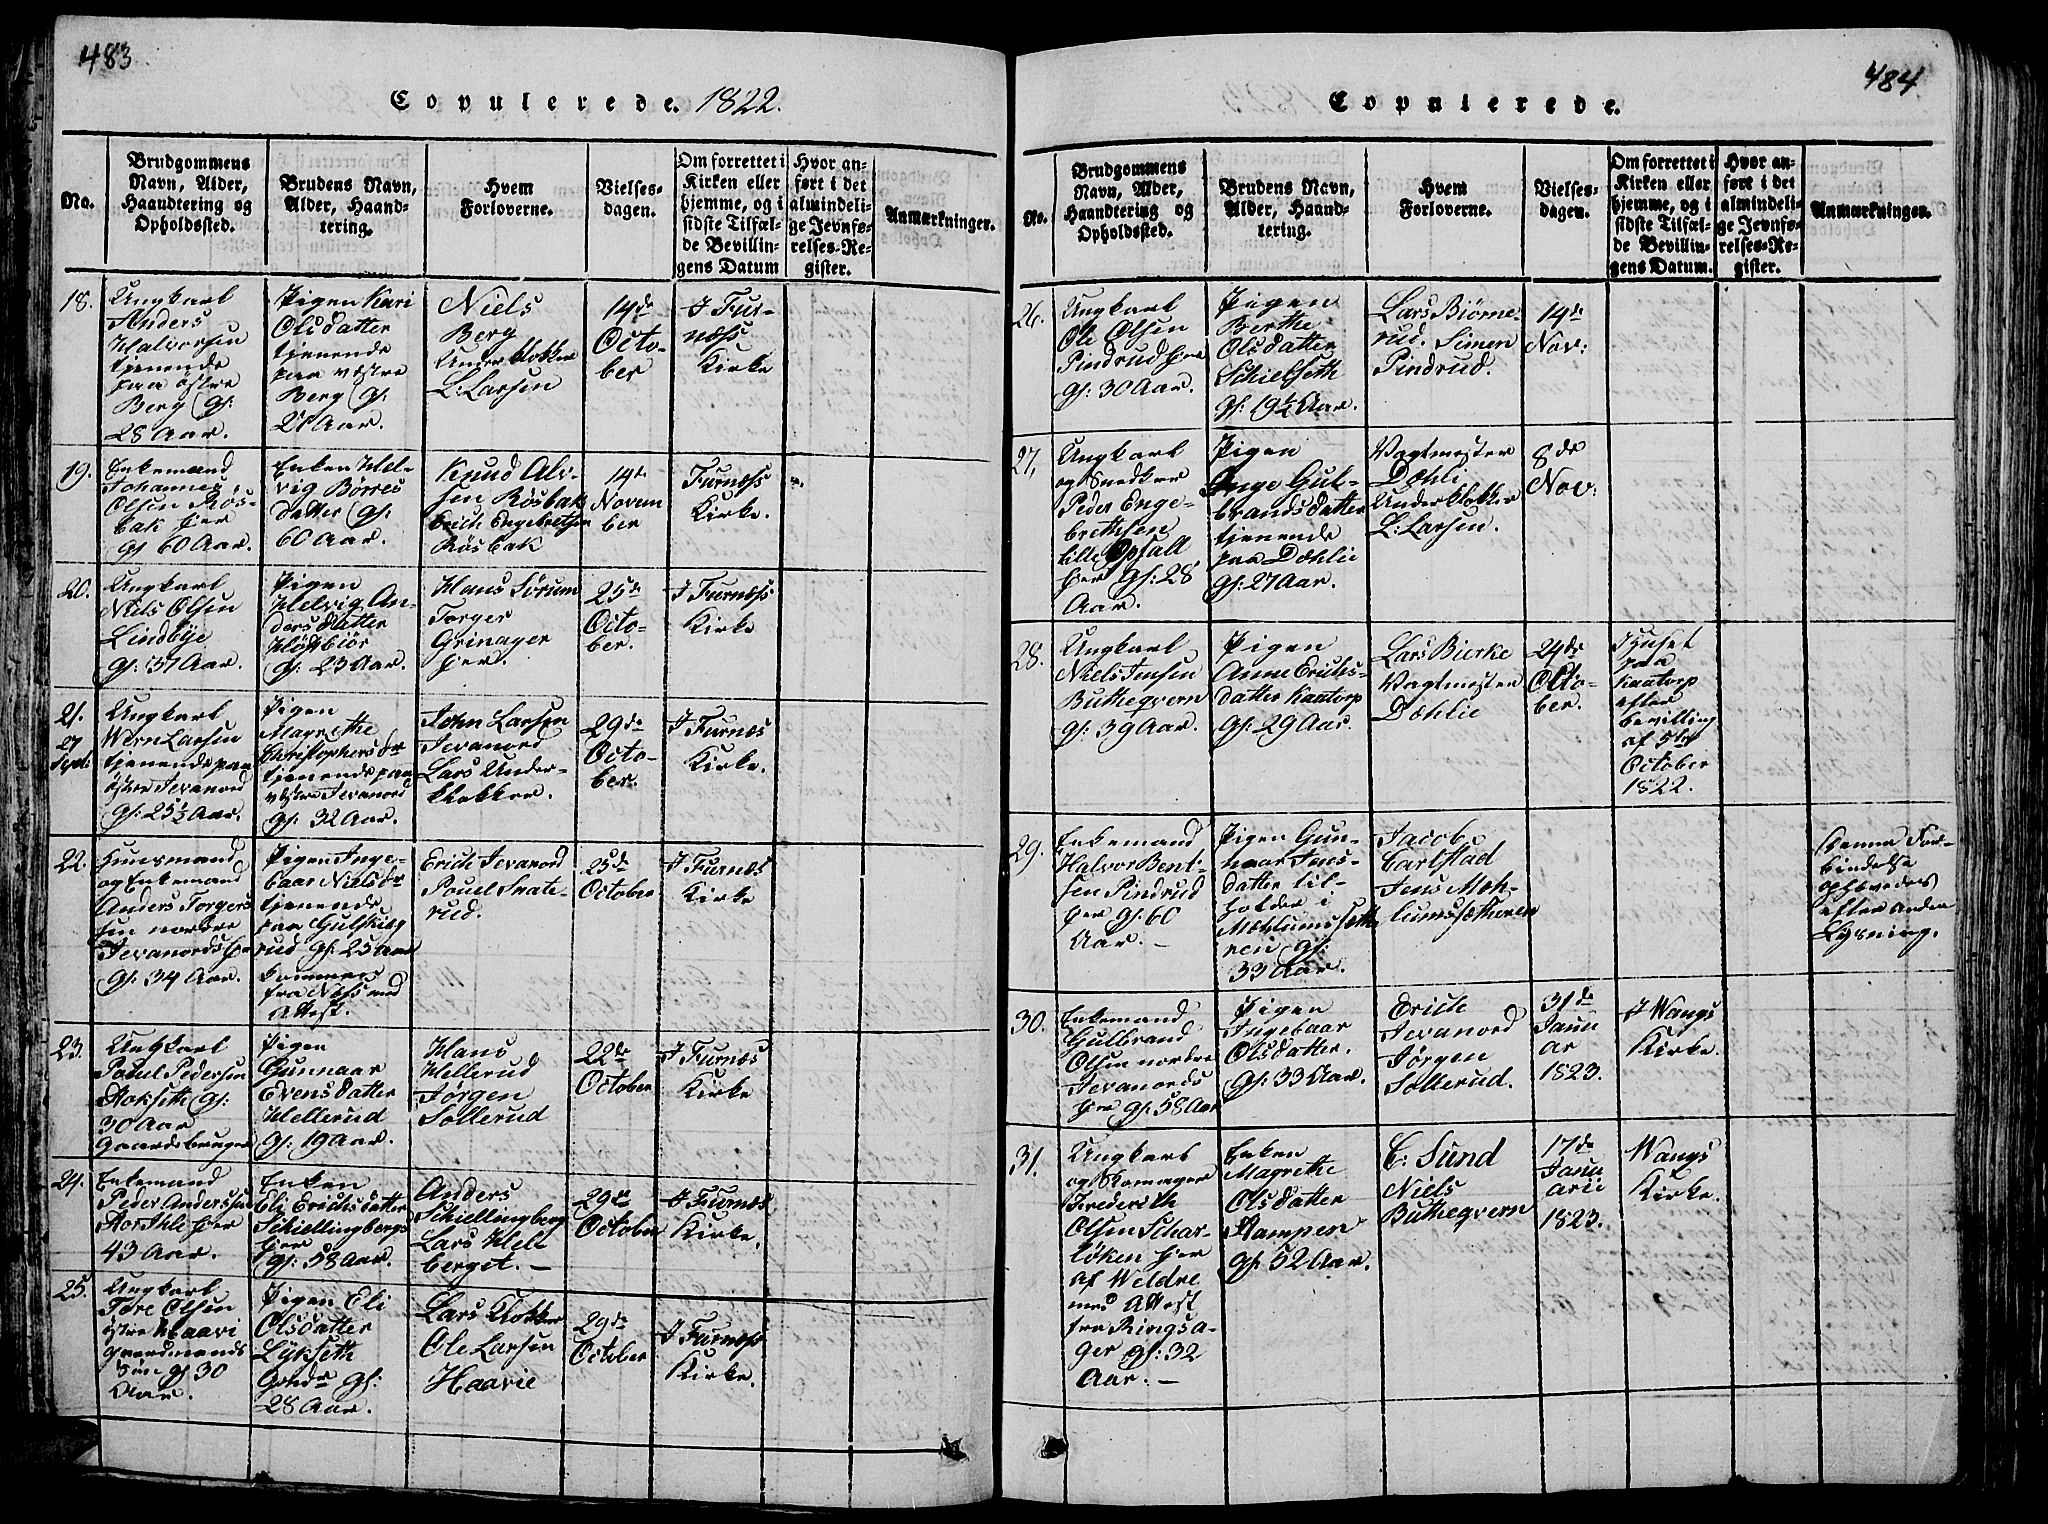 483
Copulerede. 1822.
No.
Brudgommens
Navn, Alder,
Haandtering og
Opholdssted.
Brudens Navn,
Alder, Haand-
tering.
Hvem
Forloverne.
Vielses-
dagen.
Om forrettet i
Kirken eller
hjemme, og i
sidste Tilfæl-
de Bevillin-
gens Datum
Hvor an-
ført i det
almindeli-
ge Jevnfø-
relses-Re-
gister.
Anmærkninger.
18.
Ungkarl
Anders
Halvorsen
tjenende
paa østre
Berg gl:
28 Aar.
Pigen Kari
Olsdatter
tjenende
paa væstre
Berg gl:
21 Aar.
Niels
Berg
Underklokker
L: Larsen
14de
Octo-
ber
I Fur-
næss
Kirke
19.
Enkemand
Johannes
Olsen Røs-
bak her
gl 60 Aar.
Enken Hel-
vig Børres
datter gl:
60 Aar.
Knud Alv-
sen Røsbak
Erich Engebretsen
Røsbak
14de
Novem
ber
Furnæss
Kirke.
20.
Ungkarl
Niels Olsen
Lindbye
gl: 37 Aar.
Pigen
Helvig An-
dersdatter
gl: 23 Aar.
Hans Sørum
Torger
Grinager
her.
25de
Octo-
ber.
I Furnæss
Kirke
21.
27
Ungkarl
Larsen
tjenende paa
østre Jevanord
gl: 25½ Aar.
Pigen
Magrethe
Christophersdr
tjenende paa
væstre Jevanord
gl: 32 Aar.
John Larsen
Jevanord
Lars Under-
klokker.
29de
Octo-
ber.
I Furnæs
Kirke.
22.
Huusmand
og Enkemand
Anders Torgers
sen nordre
Jevanords
gl: 34 Aar.
Pigen Inge-
baar Nielsdr
tjenende
paa
rud gl: 25 Aar
kommen
fra Næss med
Attest.
Erich Jevanord
Pouel Snate-
rud.
25de
October
I Furnæs
Kirke
23.
Ungkarl
Poul Pedersen
Stokseth gl:
30 Aar
Gaardsbruger
Pigen
Gunnaar
Evensdatter
Hellerud
gl: 19 Aar.
Hans
Hellerud
Jørgen
Sollerud
22de
October
I Furnæs
Kirke
24.
Enkemand
Peder Andersen
her
43 Aar.
Enken
Eli Erichsdatter
Schiellingbergs
her
gl: 58 Aar.
Anders
Schiellingberg
Lars Hel
berget. —
29de
October
I Furnæs
Kirke.
25.
Ungkarl
Tore Olsen
østre Haavi
Gaardmands
Søn gl 30
Aar.
Pigen Eli
Olsdatter
Lykseth
gl:
28 Aar.
Lars Klokker
Ole Larsen
Haavie
29de
October
I Furnæss
Kirke.
484
Copulerede.
No.
Brudgommens
Navn, Alder,
Haandtering og
Opholdssted.
Brudens Navn,
Alder, Haand-
tering.
Hvem
Forloverne.
Vielses-
dagen.
Om forrettet i
Kirken eller
hjemme, og i
sidste Tilfæl-
de Bevillin-
gens Datum.
Hvor an-
ført i det
almindeli-
ge Jevnfø-
relses-Re-
gister.
Anmærkninger.
26.
Ungkarl
Ole Olsen
Pindrud her
gl: 30 Aar.
Pigen
Berthe
Olsdatter
Schielseth
gl: 19½ Aar.
Lars Biørne-
rud. Simen
Pindrud.
14de
Nov:
27.
Ungkarl
og Snedker
Peder Enge-
brethsen
lille Opsall
her gl: 28
Aar.
Pigen
Inge Gul-
brandsdatter
tjenende
paa Dæhlie
gl: 27 Aar.
Vagtmester
Dæhli
Underklokker
L: Larsen.
8de
Nov:
28.
Ungkarl
Niels Jensen
Butheqvern
gl: 39 Aar.
Pigen
Anne Erichs-
datter Kaatorp
gl: 29 Aar.
Lars Bierke
Vagtmester
Dæhlie
24de
Octo-
ber.
I Huset
paa
Kaatorp
efter
bevilling
af 5te
October
1822.
29.
Enkemand
Halvor Bent-
sen Pindrud
her gl: 60
Aar. —
Pigen Gun-
haar Jens-
datter til-
holder i
gl:
33 Aar.
Jacob
Carlstad
Jens Moh-
lumssætheren
Denne For-
bindelse
ophævedes
efter anden
Lysning.
30.
Enkemand
Gulbrand
Olsen nordre
Jevanords
her gl: 58 Aar
Pigen
Ingebaar
Olsdatter.
gl: 33 Aar.
Erich
Jevanord
Jørgen
Sollerud.
31de
Janu
ar
1823.
I Wangs
Kirke.
31.
Ungkarl
og Skomager
Frederich
Olsen Schar-
løken her
af Weldre
med Attest
fra Ringsa-
ger gl: 32
Aar. —
Enken
Magrethe
Olsdatter
Stampen
gl: 52 Aar.
C: Sund
Niels
Buthegvern
17de
Janu
arii
1823.
Wangs
Kirke.